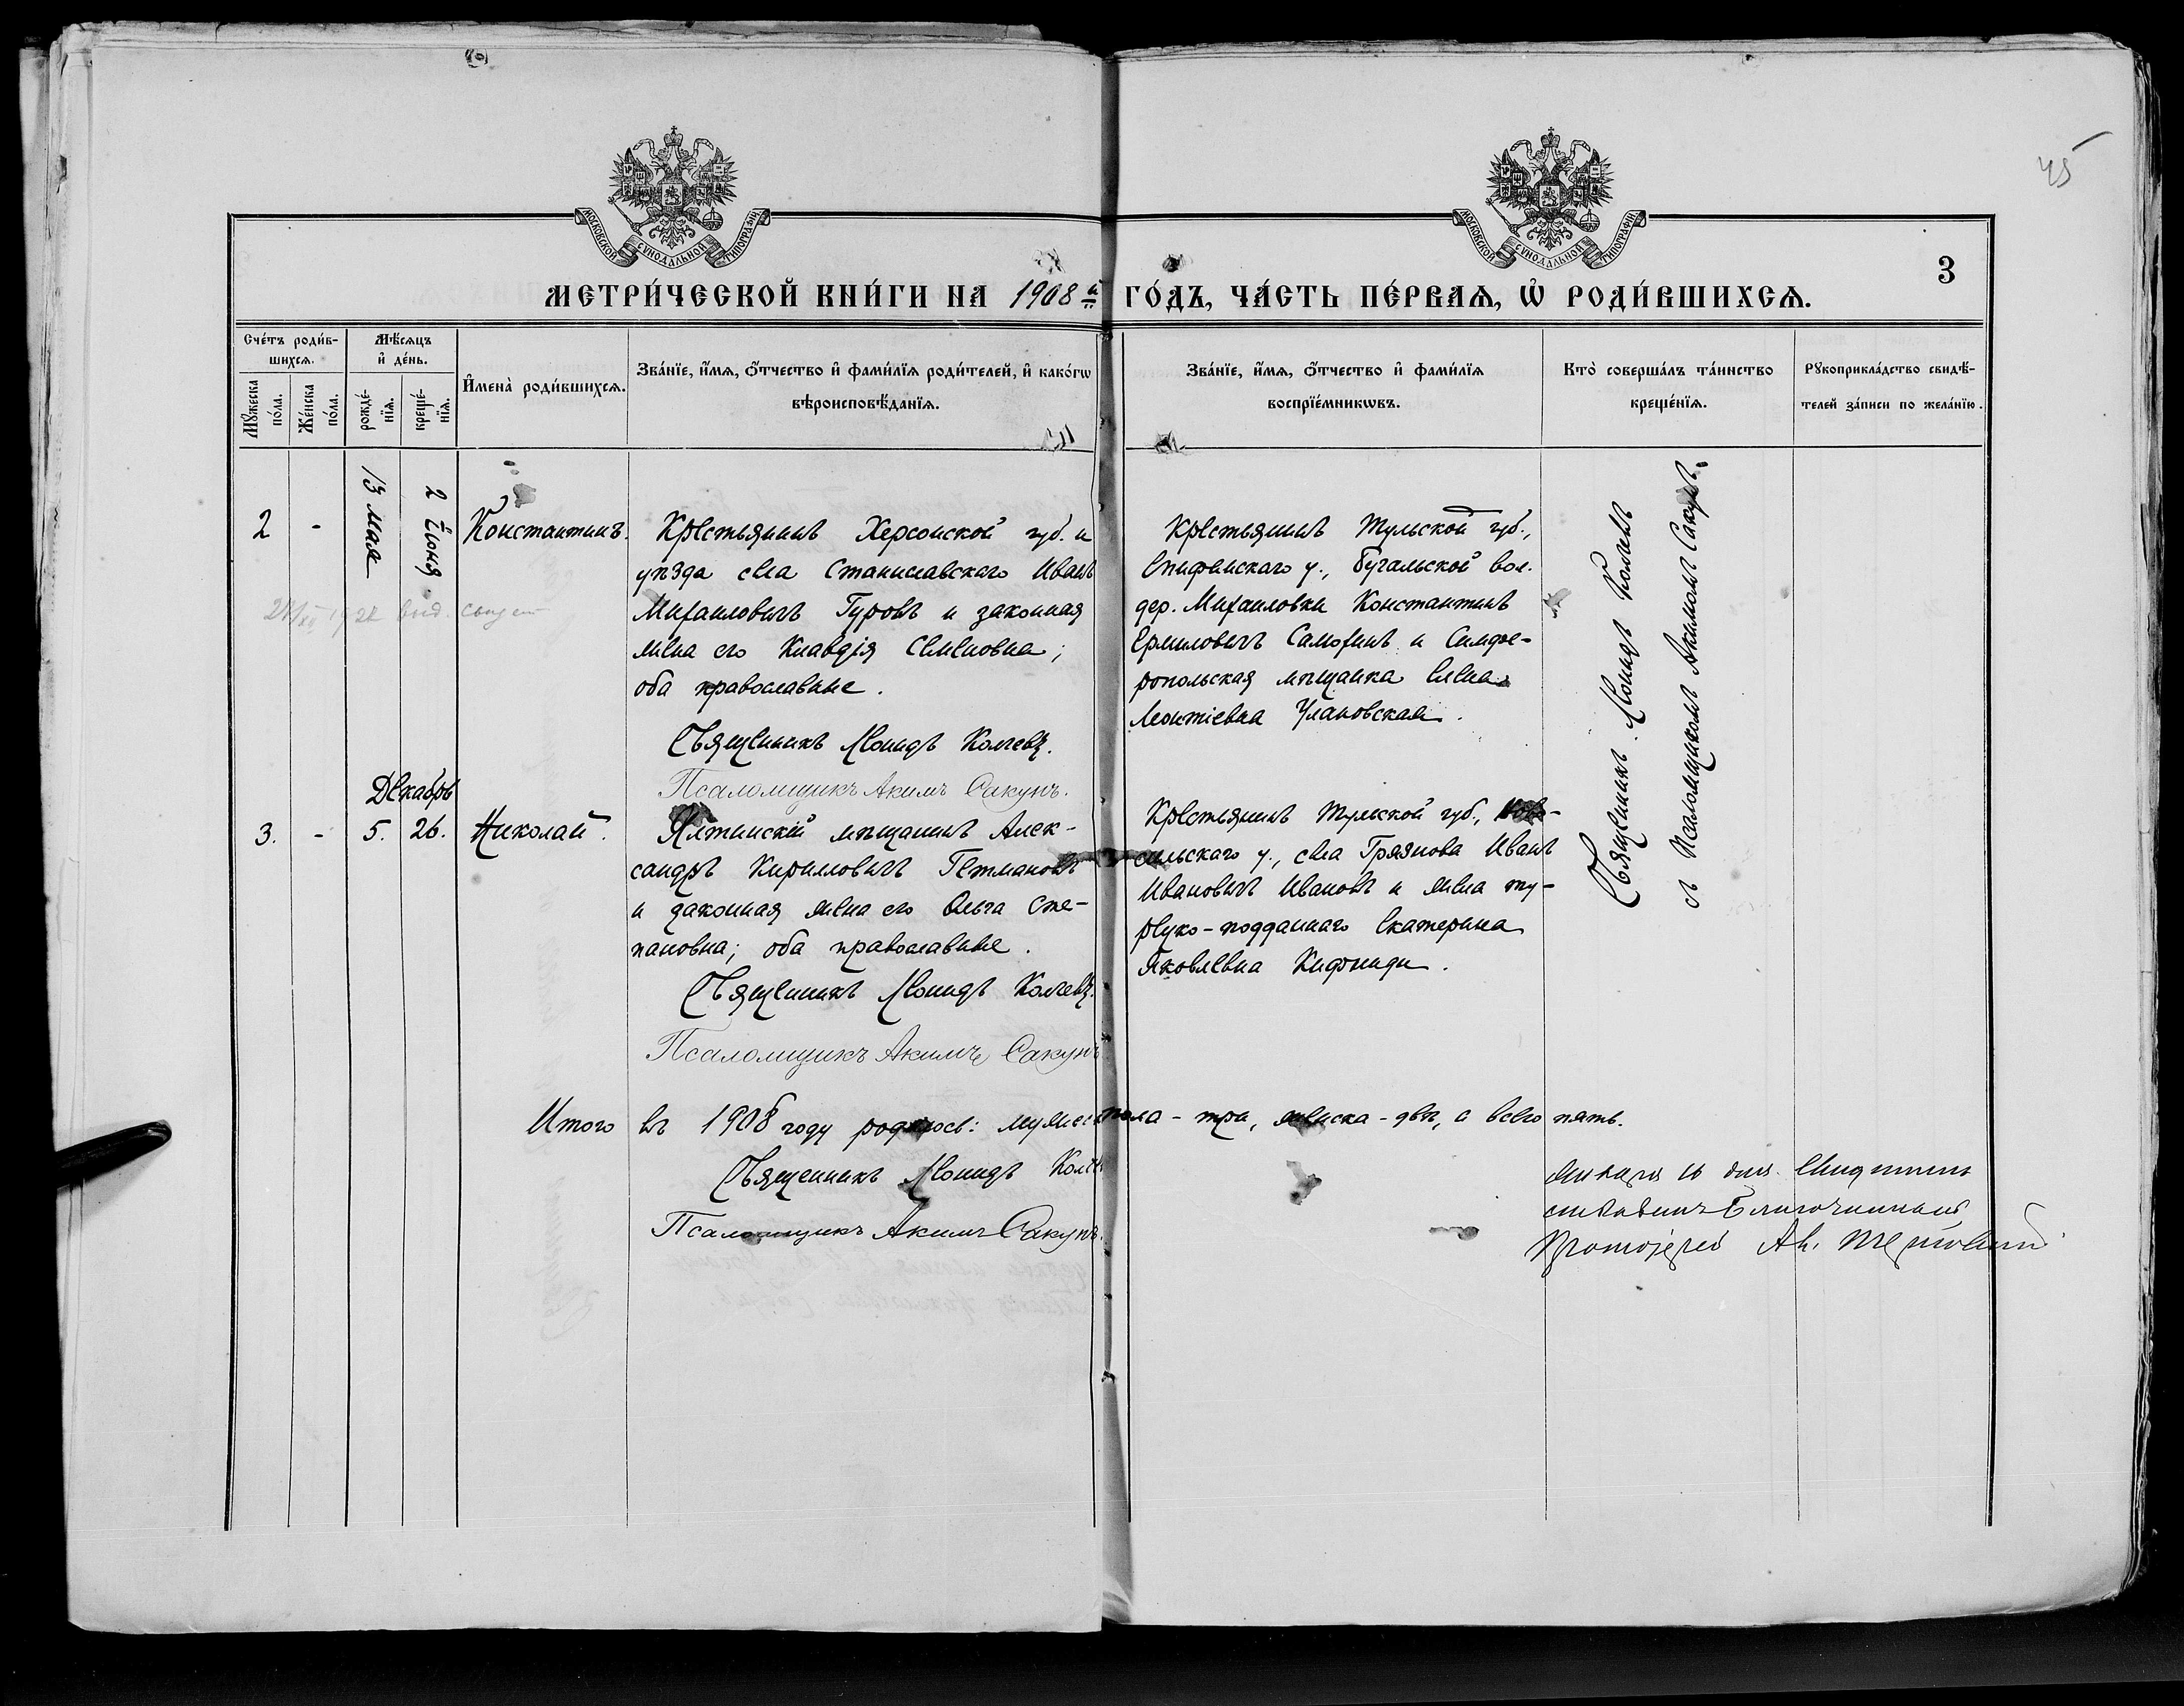 45
МОСКОВСКОЙ СѴНОДАЛЬНОЙ ТИПОГРАФІИ
МОСКОВСКОЙ СѴНОДАЛЬНОЙ ТИПОГРАФІИ
3
МЕТРИ́ЧЕСКОЙ КНИ́ГИ НА 1908й ГО́ДЪ, ЧА́СТЬ ПЕ́РВАѦ, Ѡ РОДИ́ВШИХСѦ.
Сче́тъ роди́в-
шихсѧ.
Мꙋ́жеска
по́ла.
Же́нска
по́ла.
Мѣ́сѧцъ
и де́нь.
рожде́-
нїѧ.
креще́-
нїѧ.
Имена̀ роди́вшихсѧ.
Зва́нїе, и́мѧ, ѻ́тчество и фами́лїѧ роди́телей, и како́гѡ
вѣроисповѣ́данїѧ.
Зва́нїе, и́мѧ, ѻ́тчество и фами́лїѧ
воспрїе́мникѡвъ.
Кто̀ соверша́лъ та́инство
креще́нїѧ.
Рꙋкоприкла́дство свидѣ́-
телей за́писи по жела́нїю.
2
-
13 мая
2 Іюня
Константинъ.
Крестьянинъ Херсонской губ. и
уѣзда села Станиславскаго Иванъ
Михаиловичъ Гуровъ и законная
жена его Клавдія Семеновна;
оба православные.
Священникъ Леонидъ Колчевъ.
Псаломщикъ Акимъ Сакунъ.
Крестьянинъ Тульской губ.,
Епифанскаго у., Бучальской вол.
дер. Михаиловки Константинъ
Ермиловичъ Самохинъ и Симфе-
ропольская мѣщанка Елена
Леонтіевна Улановская.
Священникъ Леонидъ Колчевъ
съ Псаломщикомъ Акимомъ Сакунъ.
выд. свидет
Декабрь
3.
-
5.
26.
Николай.
Ялтинскій мѣщанинъ Алек-
сандръ Кирилловичъ Гетмановъ
и законная жена его Ольга Сте-
пановна; оба православные.
Священникъ Леонидъ Колчевъ.
Псаломщикъ Акимъ Сакунъ
Крестьянинъ Тульской губ., Ново-
сильскаго у., села Грязнова Иванъ
Ивановичъ Ивановъ и жена ту-
рецко-подданнаго Екатерина
Яковлевна Кифниди.
Итого въ 1908 году родилось: мужеска пола - три, женска - двѣ, а всего пять.
Священникъ Леонидъ Колчевъ
Псаломщикъ Акимъ Сакунъ.
Благочинный
Протоіерей